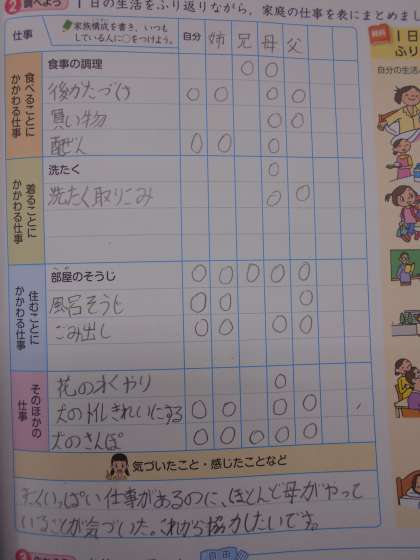 2 調べよう 1日の生活をふり返りながら、家庭の仕事を表にまとめまし
仕事 家族構成を書き、いつも
している人に○をつけよう。 自分 姉 兄 母 父
食べることに
かかわる仕事
食事の調理 ○ ○
後かたづけ ○ ○ ○ ○
買い物 ○ ○
配ぜん ○ ○ ○
着ることに
かかわる仕事
洗たく ○
洗たく取りこみ ○ ○
住むことに
かかわる仕事
部屋のそうじ ○ ○ ○ ○ ○
風呂そうじ ○ ○ ○
ごみ出し ○ ○ ○ ○
そのほかの
仕事
花の水やり ○
犬のトイレきれいにする ○ ○ ○ ○
犬のさんぽ ○ ○ ○ ○ ○
気づいたこと・感じたことなど
いっぱい仕事があるのに、ほとんど母がやって
いることが気づいた。これから協力したいです。
1日
ふり
自分の生活
自由